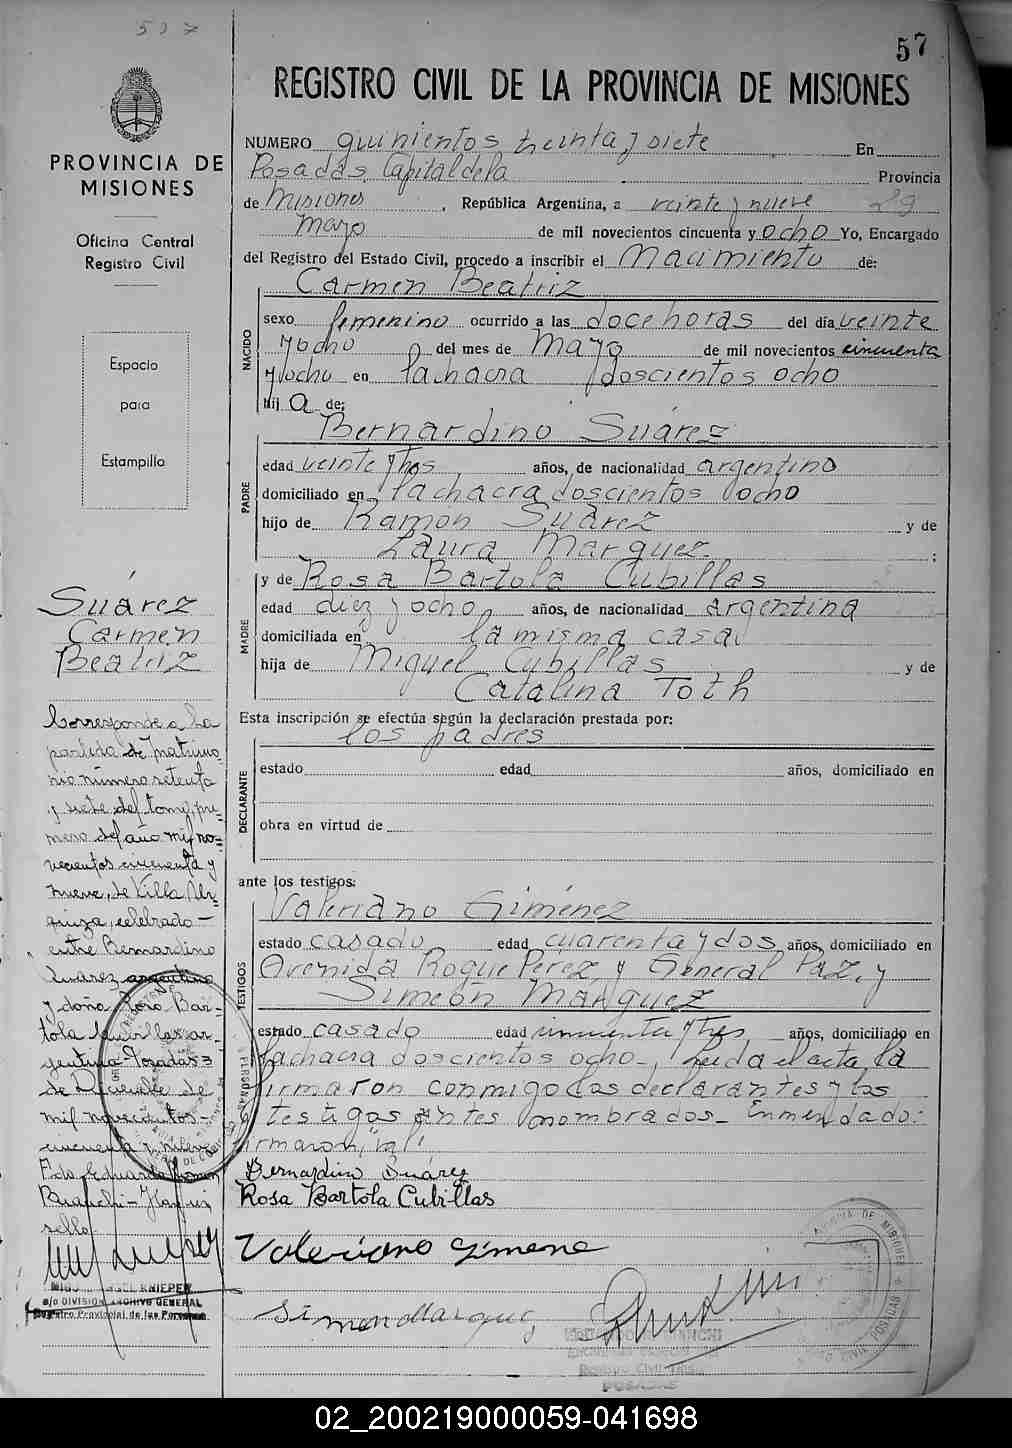 507
57
REGISTRO CIVIL DE LA PROVINCIA DE MISIONES
PROVINCIA DE
MISIONES
Oficina Central
Registro Civil
Espacio
para
Estampilla
NUMERO quinientos treinta y siete En
Posadas, Capital de la Provincia
de Misiones, República Argentina, a veinte y nueve 29
Mayo de mil novecientos cincuenta y ocho Yo, Encargado
del Registro del Estado Civil, procedo a inscribir el Nacimiento de:
Carmen Beatriz
NACIDO
sexo femenino ocurrido a las doce horas del día veinte
y ocho del mes de Mayo de mil novecientos cincuenta
y ocho en la chacra doscientos ocho
hij a de:
Bernardino Suárez
PADRE
edad veinte y tres años, de nacionalidad argentino
domiciliado en la chacra doscientos ocho
hijo de Ramón Suárez y de
Laura Márquez ;
y de Rosa Bartola Cubillas
MADRE
edad diez y ocho años, de nacionalidad argentina
domiciliada en la misma casa
hija de Miguel Cubillas y de
Catalina Toth
Esta inscripción se efectúa según la declaración prestada por:
los padres
DECLARANTE
estado edad años, domiciliado en
obra en virtud de
ante los testigos:
Valeriano Giménez
TESTIGOS
estado casado edad cuarenta y dos años, domiciliado en
Avenida Roque Pérez y General Paz, y
Simeón Márquez
estado casado edad cincuenta y tres años, domiciliado en
la chacra doscientos ocho-, leida el acta, la
firmaron conmigo los declarantes y los
testigos antes nombrados- Enmendado:
irmaron, val.
Bernardino Suárez
Rosa Bartola Cubillas
Valeriano Gimene
Simon Marquez
Suárez
Carmen
Beatriz
Corresponde a la
partida de matrimo-
nio número setenta
y siete del tomo pri-
mero del año mil no-
vecientos cincuenta y
nueve, de Villa Ur-
quiza, celebrado-
entre Bernardino
Suárez argentino
y doña Rosa Bar-
tola Cubillas ar-
gentina-Posadas 3
de Diciembre de
mil novecientos-
cincuenta y nueve
Fdo. Eduardo Ramón
Bianchi-Hay un
sello-
ANGEL KNIEPER
a/c DIVISION ARCHIVO GENERAL
Registro Provincial de las Personas
BIANCHI
Registro Civil
POSADAS
02_200219000059-041698